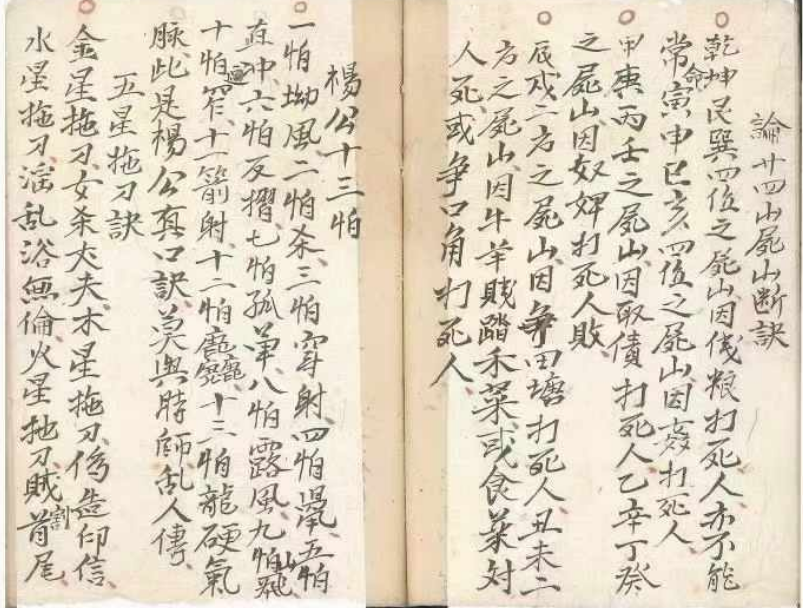 論廿四山屍山断訣
乾坤艮巽四位之屍山因伐粮打死人亦不能
常命寅申巳亥四位之屍山因姦打死人
甲庚丙壬之屍山因取債打死人乙辛丁癸
之屍山因奴婢打死人敗
辰戌二方之屍山因争田塘打死人丑未二
方之屍山因牛羊賎踏禾菜或食菜対
人死或争口角打死人
楊公十三怕
一怕坳風二怕杀三怕穿射四怕 五怕
直冲六怕反摺七怕孤单八怕露風九怕
十怕窄十一箭射十二怕 十三怕龍硬氣
脉此是楊公真口訣莫與時師乱人傳
五星拖刀訣
金星拖刀女杀丈夫木星拖刀偽造印信
水星拖刀滛乱浴無倫火星拖刀賊割首尾